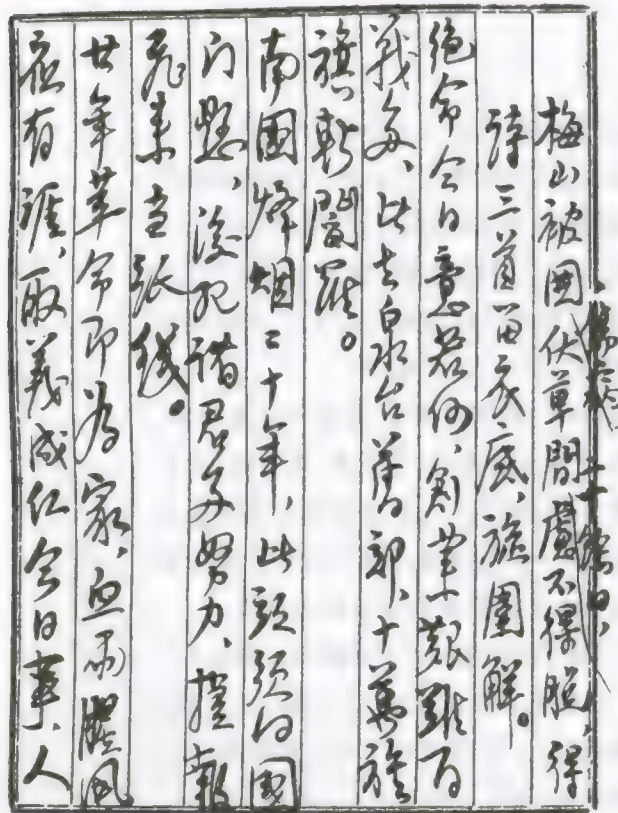 傷病 二十餘日,
梅山被圍伏草間慮不得脱,得
詩三首留衣底,旋圍解。
絶命今日意若何,創業艱難百
戰多、此去泉台舊部、十萬旌
旗斬閻羅。
南國烽烟二十年,此頭須向國
门懸,後死諸君多努力,捷報
飛来当紙錢。
廿年革命即為家,血雨腥風
應有涯,取義成仁今日事,人